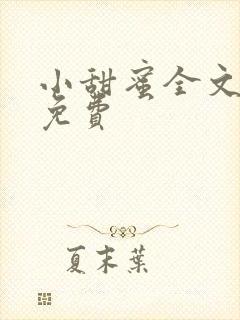 小甜蜜全文
免費
夏末葉